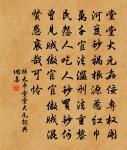 堂堂大元奸佞專權開
河變鈔禍根源惹紅巾
萬千官法濫刑法重黎
民怨人吃人鈔買鈔何
曾見賊做官官做賊混
賢愚哀哉可憐
醉太平堂堂大元